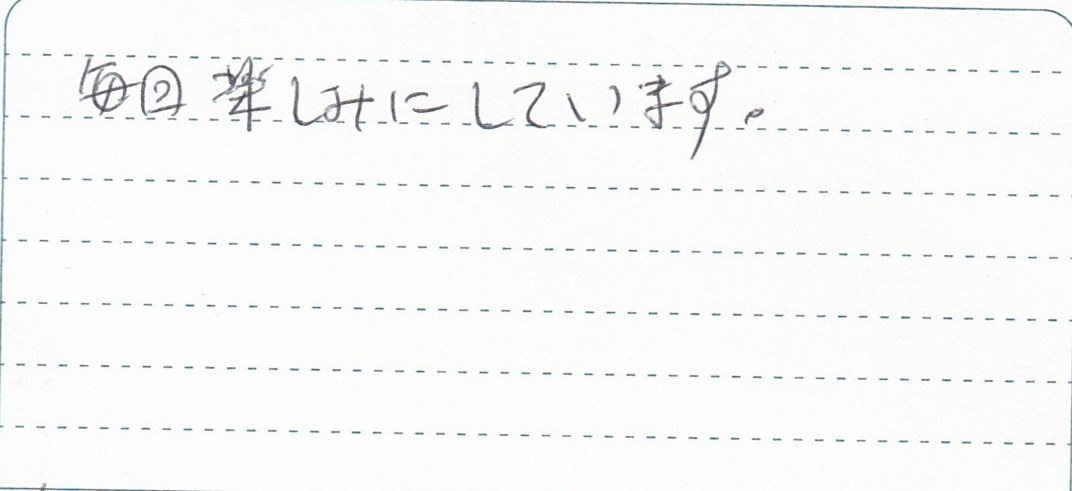 毎回楽しみにしています。